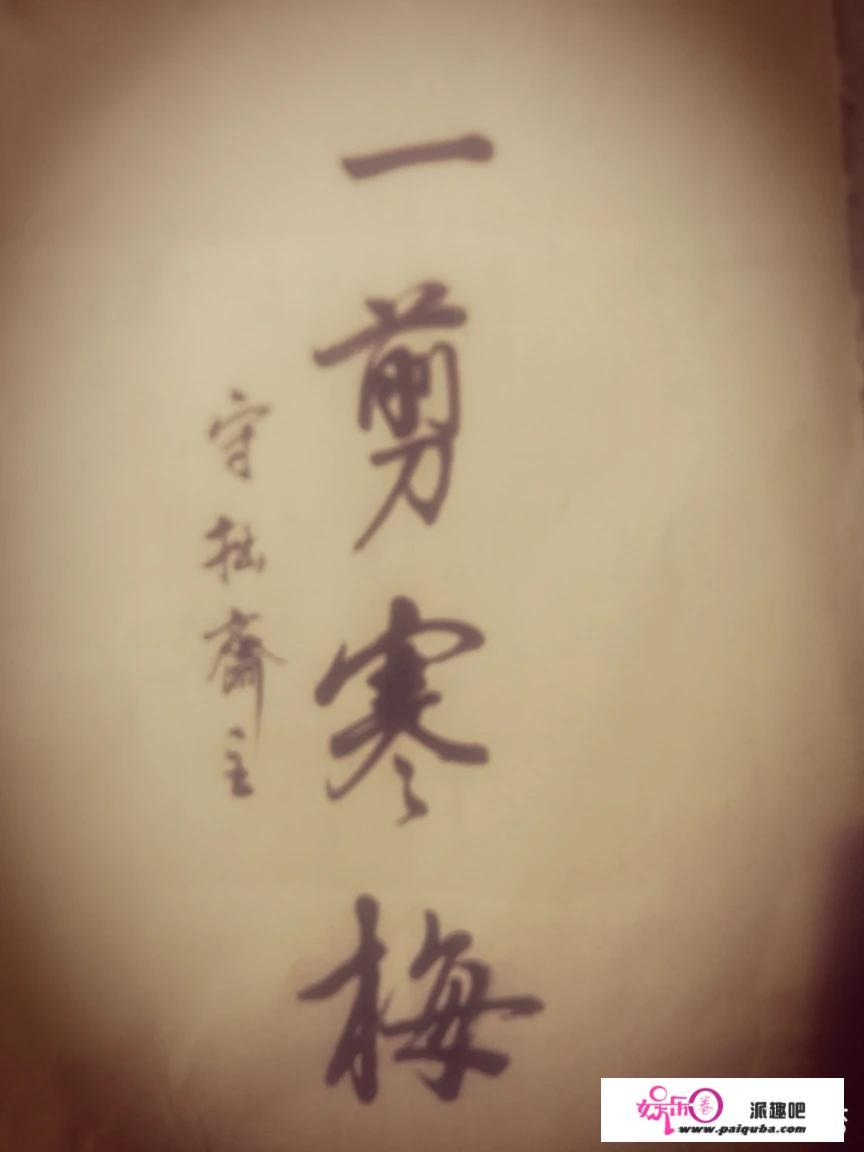 一剪寒梅
守拙斎主
娱乐圈
派趣吧
www.paiquba.com